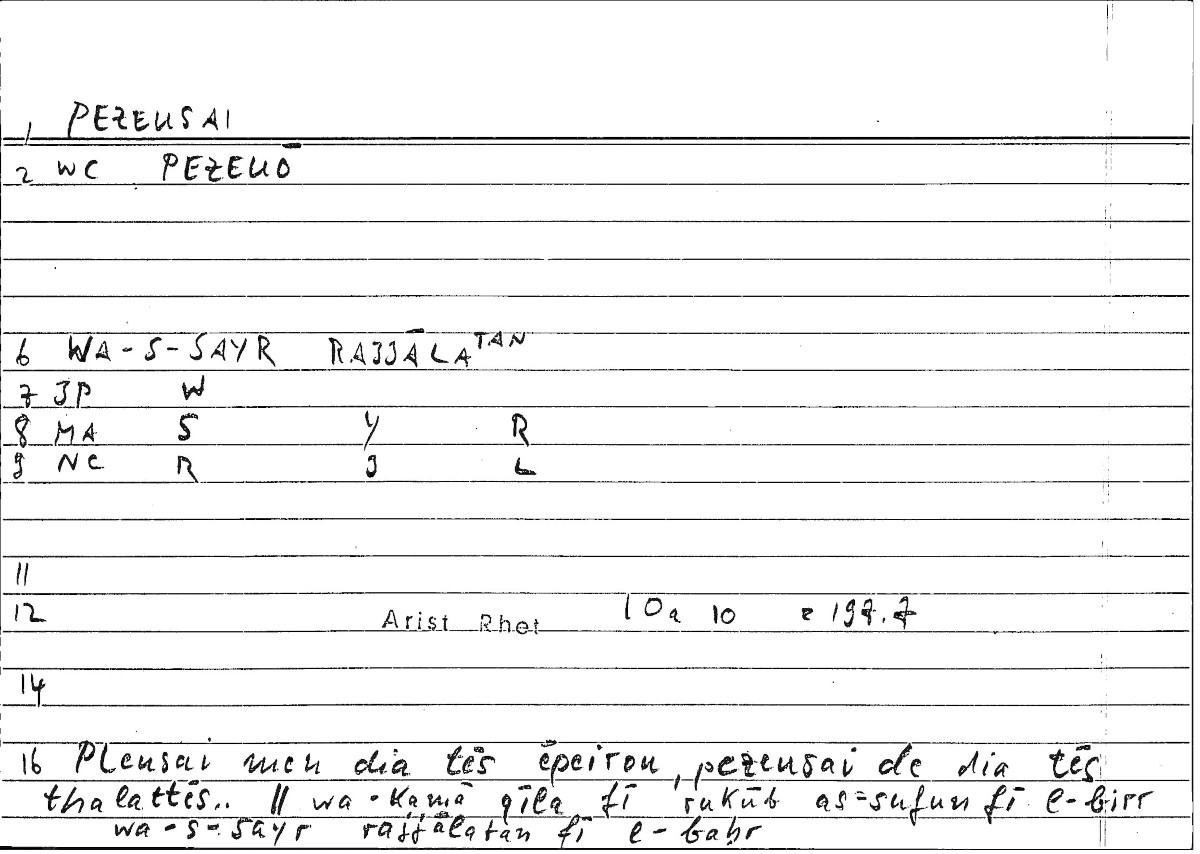 1 PEZEUSAI
2 WC PEZEUŌ
6 WA-S-SAYR RAJJĀLATAN
7 JP W
8 MA S Y R
9 NC R J L
11
12 Arist Rhet 10a 10 = 197.7
14
16 Pleusai men dia tēs ēpeirou, pezeusai de dia tēs
thalattēs.. || wa-kamā qīla fī rukūb as-sufun fī l-birr
wa-s-sayr rajjālatan fī l-baḥr